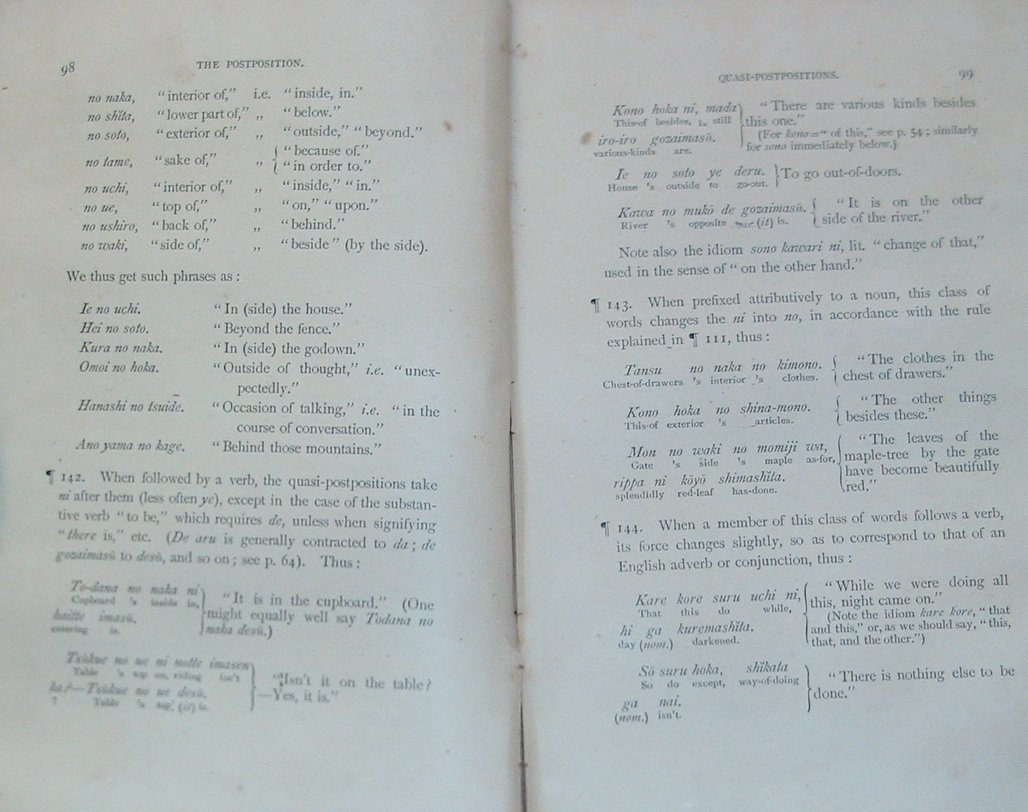 98 THE POSTPOSITION.
no naka, “interior of,” i.e. “inside, in.”
no shĭta, “lower part of,” „ “below.”
no soto, “exterior of,” „ “outside,” “beyond.”
no tame, “sake of,” „ { “because of.”
“in order to.”
no uchi, “interior of,” „ “inside,” “in.”
no ue, “top of,” „ “on,” “upon.”
no ushiro, “back of,” „ “behind.”
no waki, “side of,” „ “beside” (by the side).
We thus get such phrases as :
Ie no uchi. “In (side) the house.”
Hei no soto. “Beyond the fence.”
Kura no naka. “In (side) the godown.”
Omoi no hoka. “Outside of thought,” i.e. “unex-
pectedly.”
Hanashi no tsuide. “Occasion of talking,” i.e. “in the
course of conversation.”
Ano yama no kage. “Behind those mountains.”
¶ 142. When followed by a verb, the quasi-postpositions take
ni after them (less often ye), except in the case of the substan-
tive verb “to be,” which requires de, unless when signifying
“there is,” etc. (De aru is generally contracted to da ; de
gozaimasŭ to desŭ, and so on ; see p. 64). Thus :
To-dana no naka ni } “It is in the cupboard.” (One
Cupboard 's inside in,
haitte imasŭ. might equally well say Todana no
entering is. naka desŭ.)
Tsŭkue no ue ni notte imasen
Table 's top on, riding isn't
ka?—Tsŭkue no ue desŭ. } “Isn't it on the table?
? Table 's top (it) is. —Yes, it is.”
QUASI-POSTPOSITIONS. 99
Kono hoka ni, mada } “There are various kinds besides
This-of besides, still this one.”
iro-iro gozaimasŭ. (For kono = “ of this,” see p. 54 ; similarly
various-kinds are. for sono immediately below.)
Ie no soto ye deru. } To go out-of-doors.
House 's outside to go-out.
Kawa no mukō de gozaimasŭ. { “It is on the other
River 's opposite (it) is. side of the river.”
Note also the idiom sono kawari ni, lit. “change of that,”
used in the sense of “ on the other hand.”
¶ 143. When prefixed attributively to a noun, this class of
words changes the ni into no, in accordance with the rule
explained in ¶ 111, thus :
Tansu no naka no kimono. { “The clothes in the
Chest-of-drawers 's interior 's clothes. chest of drawers.”
Kono hoka no shina-mono. { “The other things
This-of exterior 's articles. besides these.”
Mon no waki no momiji wa, { “The leaves of the
Gate 's side 's maple as-for, maple-tree by the gate
rippa ni kōyō shimashĭta. have become beautifully
splendidly red-leaf has-done. red.”
¶ 144. When a member of this class of words follows a verb,
its force changes slightly, so as to correspond to that of an
English adverb or conjunction, thus :
Kare kore suru uchi ni, { “While we were doing all
That this do while, this, night came on.”
hi ga kuremashĭta. (Note the idiom kare kore, “that
day (nom.) darkened. and this,” or, as we should say, “this,
that, and the other.”)
Sō suru hoka, shĭkata } “There is nothing else to be
So do except, way-of-doing done.”
ga nai.
(nom.) isn't.